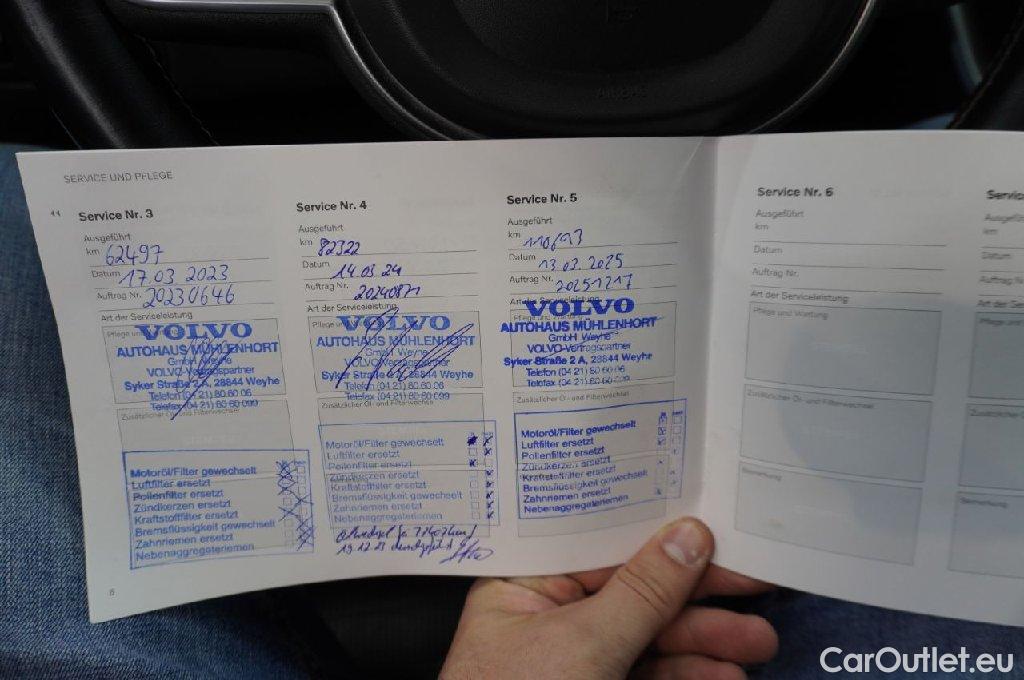 SERVICE UND PFLEGE
Service Nr. 3
Ausgeführt
km 62497
Datum 17.03 2023
Auftrag Nr. 20230646
Art der Serviceleistung
VOLVO
AUTOHAUS MÜHLENHORT
GmbH Weyhe
VOLVO-Vertragspartner
Syker Straße 2 A, 28844 Weyhe
Telefon (04 21) 80 60 06
Telefax (04 21) 80 60 099
Zusätzlicher Öl- und Filterwechsel
Motoröl/Filter gewechselt
Luftfilter ersetzt
Pollenfilter ersetzt
Zündkerzen ersetzt
Kraftstofffilter ersetzt
Bremsflüssigkeit gewechselt
Zahnriemen ersetzt
Nebenaggregateriemen
8
Service Nr. 4
Ausgeführt
km 82322
Datum 14.03 24
Auftrag Nr.
Art der Serviceleistung
Pflege und
VOLVO
AUTOHAUS MÜHLENHORT
GmbH Weyhe
VOLVO-Vertragspartner
Syker Straße 2 A, 28844 Weyhe
Telefon (04 21) 80 60 06
Telefax (04 21) 80 60 099
Zusätzlicher Öl- und Filterwechsel
Motoröl/Filter gewechselt
Luftfilter ersetzt
Pollenfilter ersetzt
Zündkerzen ersetzt
Kraftstofffilter ersetzt
Bremsflüssigkeit gewechselt
Zahnriemen ersetzt
Nebenaggregateriemen
19.12.23
Service Nr. 5
Ausgeführt
km 110693
Datum 13.03.2025
Auftrag Nr. 20251217
Art der Serviceleistung
VOLVO
AUTOHAUS MÜHLENHORT
GmbH Weyhe
VOLVO-Vertragspartner
Syker Straße 2 A, 28844 Weyhe
Telefon (04 21) 80 60 06
Telefax (04 21) 80 60 099
Zusätzlicher Öl- und Filterwechsel
Motoröl/Filter gewechselt
Luftfilter ersetzt
Pollenfilter ersetzt
Zündkerzen ersetzt
Kraftstofffilter ersetzt
Bremsflüssigkeit gewechselt
Zahnriemen ersetzt
Nebenaggregateriemen
Service Nr. 6
Ausgeführt
km
Datum
Auftrag Nr.
Art der Serviceleistung
Pflege und Wartung
Zusätzlicher Öl- und Filterwechsel
Bemerkung
CarOutlet.eu